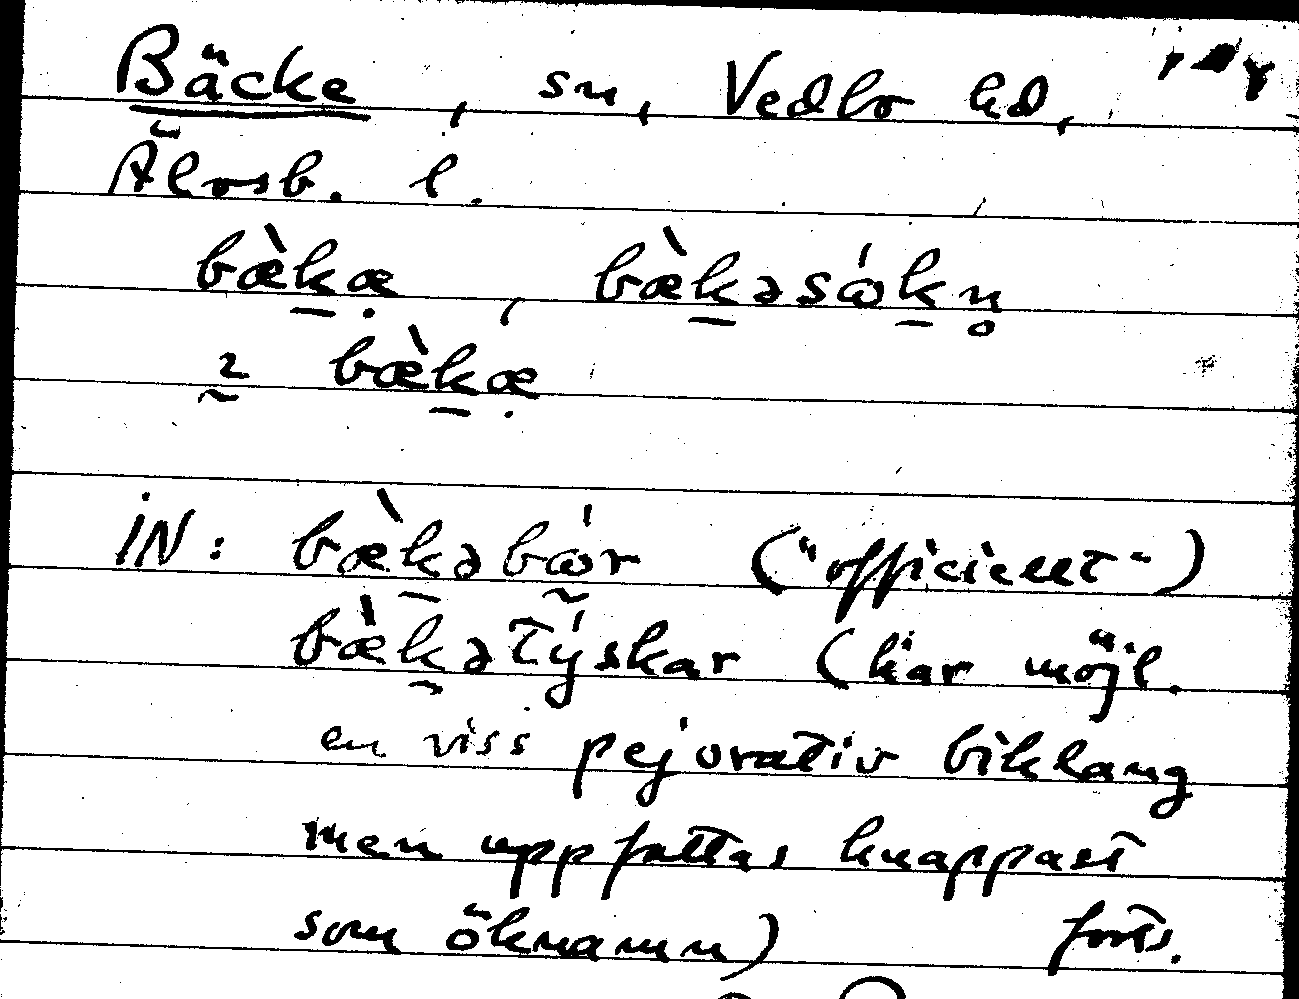 Bäcke, sn, Vedbo hd,
Älvsb. l.
bæ̀k̠æ̣, bæ̀k̠əsɷ́k̠n̥
2̰ bæ̀k̠æ̣
iN: bæ̀k̠əbɷ̰́r ("officiellt")
bæ̀k̠ətýskar (har möjl.
en viss pejorativ biklang
men uppfattas knappast
som öknamn) forts.